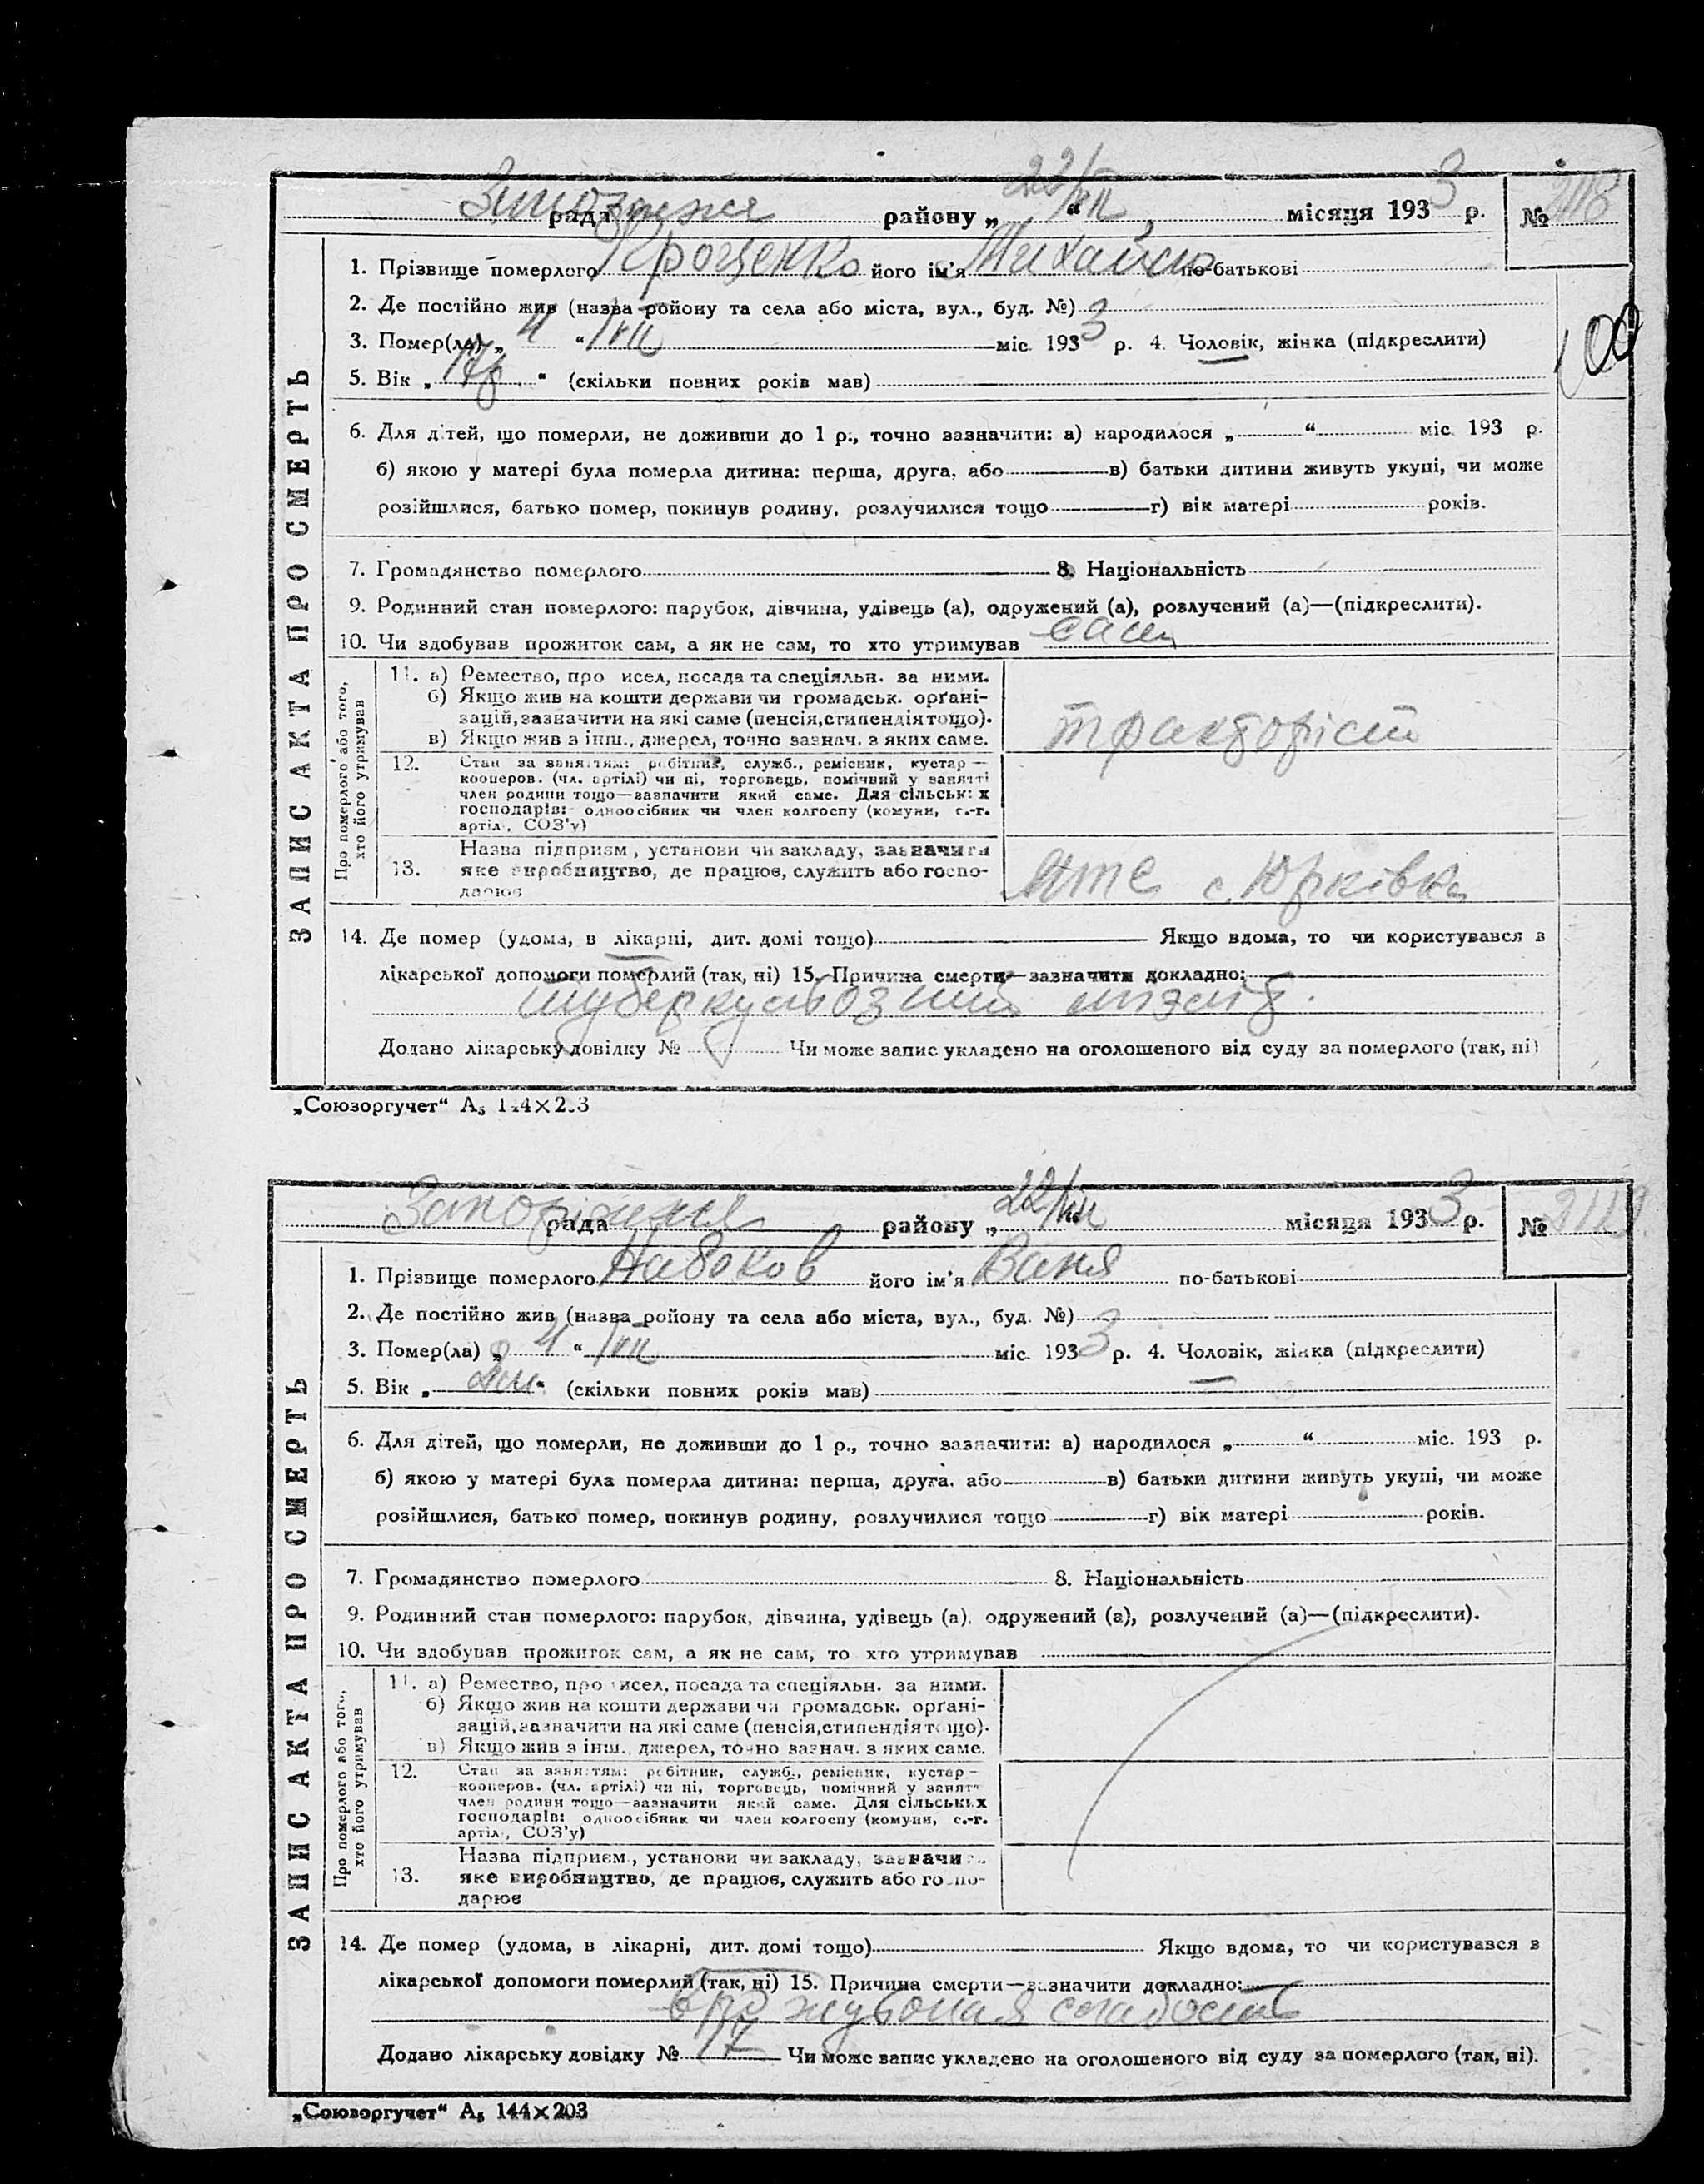 рада району „ 22/VII “ місяця 1933 р. № 2118
ЗАПИС АКТА ПРО СМЕРТЬ
1. Прізвище померлого Кроценко його ім'я Михайло по-батькові
2. Де постійно жив (назва ройону та села або міста, вул., буд. №)
3. Помер(ла) „ 4 “ /VII міс. 1933 р. 4. Чоловік, жінка (підкреслити)
5. Вік „ “ (скільки повних років мав)
100
6. Для дітей, що померли, не доживши до 1 р., точно зазначити: а) народилося „ “ міс. 193 р.
б) якою у матері була померла дитина: перша, друга, або в) батьки дитини живуть укупі, чи може
розійшлися, батько помер, покинув родину, розлучилися тощо г) вік матері років.
7. Громадянство померлого 8. Національність
9. Родинний стан померлого: парубок, дівчина, удівець (а), одружений (а), розлучений (а)—(підкреслити).
10. Чи здобував прожиток сам, а як не сам, то хто утримував сам
Про померлого або того,
хто його утримував
11. а) Ремество, про исел, посада та спеціяльн. за ними.
б) Якщо жив на кошти держави чи громадськ. орґані-
зацій, зазначити на які саме (пенсія, стипендія тощо).
в) Якщо жив з інш., джерел, точно зазнач. з яких саме.
тракторіст
12. Стан за заняттям: робітник, служб., ремісник, кустар—
кооперов. (чл. артілі) чи ні, торговець, помічний у занятті
член родини тощо—зазначити який саме. Для сільських
господарів: одноосібник чи член колгоспу (комуни, с.-г.
артілі, СОЗ'у)
13. Назва підприєм., установи чи закладу, зазначити
яке виробництво, де працює, служить або госпо-
дарює
МТС с. Юрківка
14. Де помер (удома, в лікарні, дит. домі тощо) Якщо вдома, то чи користувався з
лікарської допомоги померлий (так, ні) 15. Причина смерти—зазначити докладно:
туберкульозний
Додано лікарську довідку № Чи може запис укладено на оголошеного від суду за померлого (так, ні)
„Союзоргучет“ А₅ 144×203
Запоріжжя рада району „ 22/VII “ місяця 1933 р. № 2119
ЗАПИС АКТА ПРО СМЕРТЬ
1. Прізвище померлого Набоков його ім'я Ваня по-батькові
2. Де постійно жив (назва ройону та села або міста, вул., буд. №)
3. Помер(ла) „ 4 “ /VII міс. 1933 р. 4. Чоловік, жінка (підкреслити)
5. Вік „ 2 м. “ (скільки повних років мав)
6. Для дітей, що померли, не доживши до 1 р., точно зазначити: а) народилося „ “ міс. 193 р.
б) якою у матері була померла дитина: перша, друга, або в) батьки дитини живуть укупі, чи може
розійшлися, батько помер, покинув родину, розлучилися тощо г) вік матері років.
7. Громадянство померлого 8. Національність
9. Родинний стан померлого: парубок, дівчина, удівець (а), одружений (а), розлучений (а)—(підкреслити).
10. Чи здобував прожиток сам, а як не сам, то хто утримував
Про померлого або того,
хто його утримував
11. а) Ремество, про исел, посада та спеціяльн. за ними.
б) Якщо жив на кошти держави чи громадськ. орґані-
зацій, зазначити на які саме (пенсія, стипендія тощо).
в) Якщо жив з інш., джерел, точно зазнач. з яких саме.
12. Стан за заняттям: робітник, служб., ремісник, кустар—
кооперов. (чл. артілі) чи ні, торговець, помічний у занятті
член родини тощо—зазначити який саме. Для сільських
господарів: одноосібник чи член колгоспу (комуни, с.-г.
артілі, СОЗ'у)
13. Назва підприєм., установи чи закладу, зазначити
яке виробництво, де працює, служить або госпо-
дарює
14. Де помер (удома, в лікарні, дит. домі тощо) Якщо вдома, то чи користувався з
лікарської допомоги померлий (так, ні) 15. Причина смерти—зазначити докладно:
слабость
Додано лікарську довідку № Чи може запис укладено на оголошеного від суду за померлого (так, ні).
„Союзоргучет“ А₅ 144×203